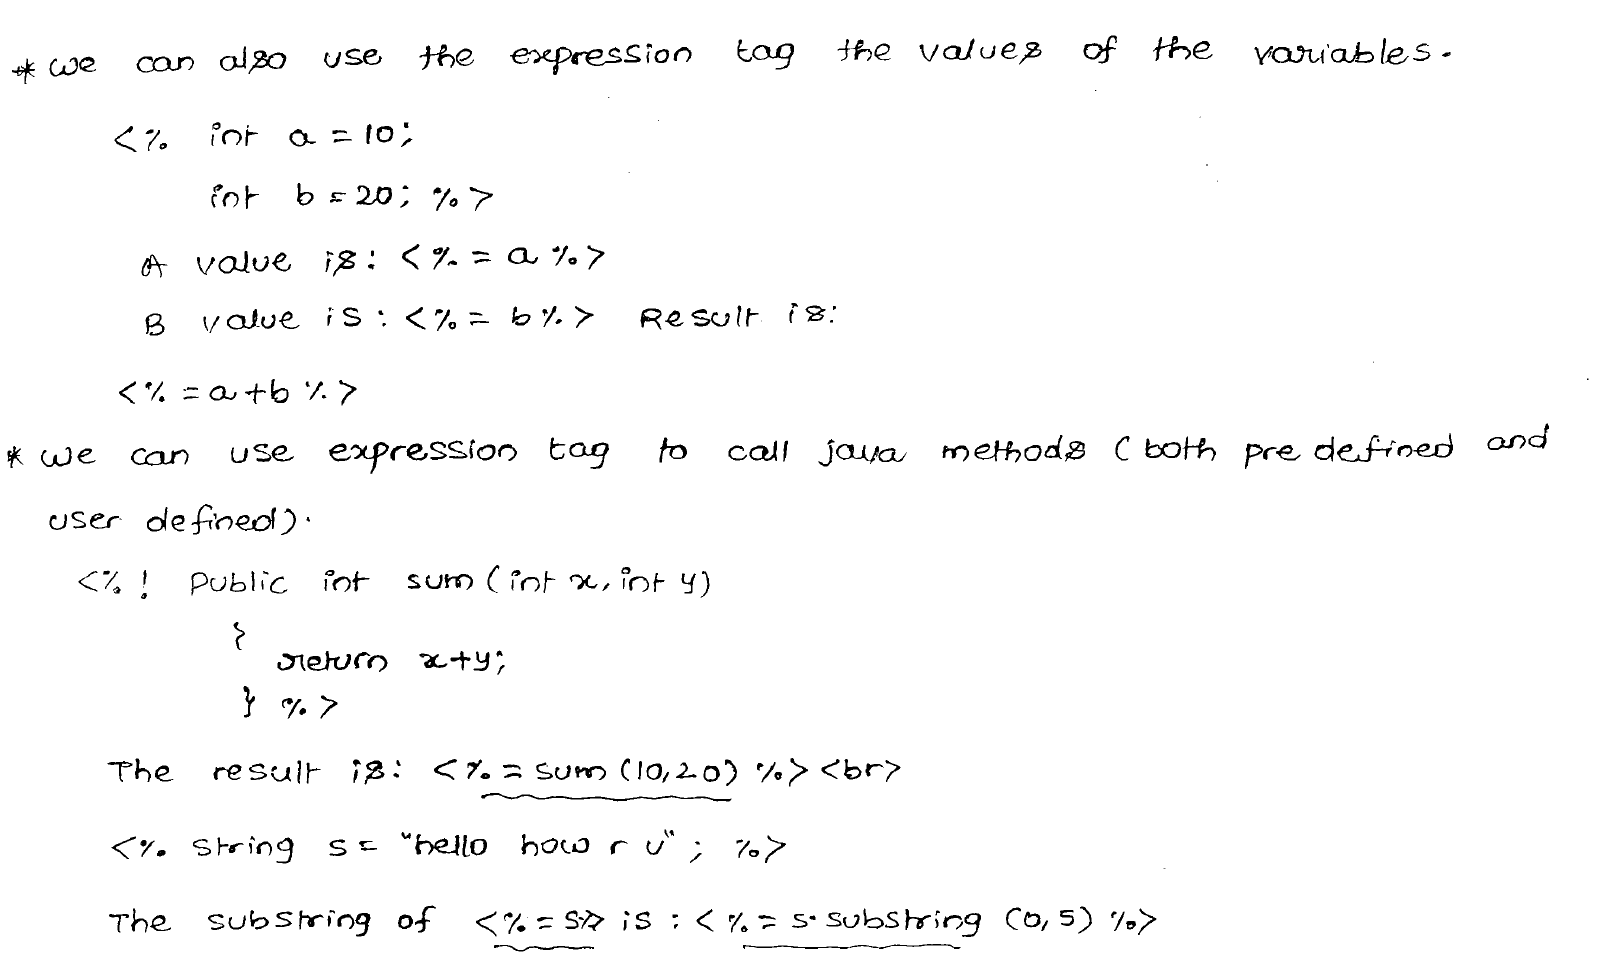 * we can also use the expression tag the values of the variables.
<% int a = 10;
int b = 20; %>
A value is: <% = a %>
B value is: <% = b %> Result is:
<% = a+b %>
* we can use expression tag to call java methods (both pre defined and
user defined).
<% ! Public int sum (int x, int y)
{
return x+y;
} %>
The result is: <% = sum (10,20) %> <br>
<% string s = "hello how r u" ; %>
The substring of <% = s%> is : <% = s.substring (0,5) %>